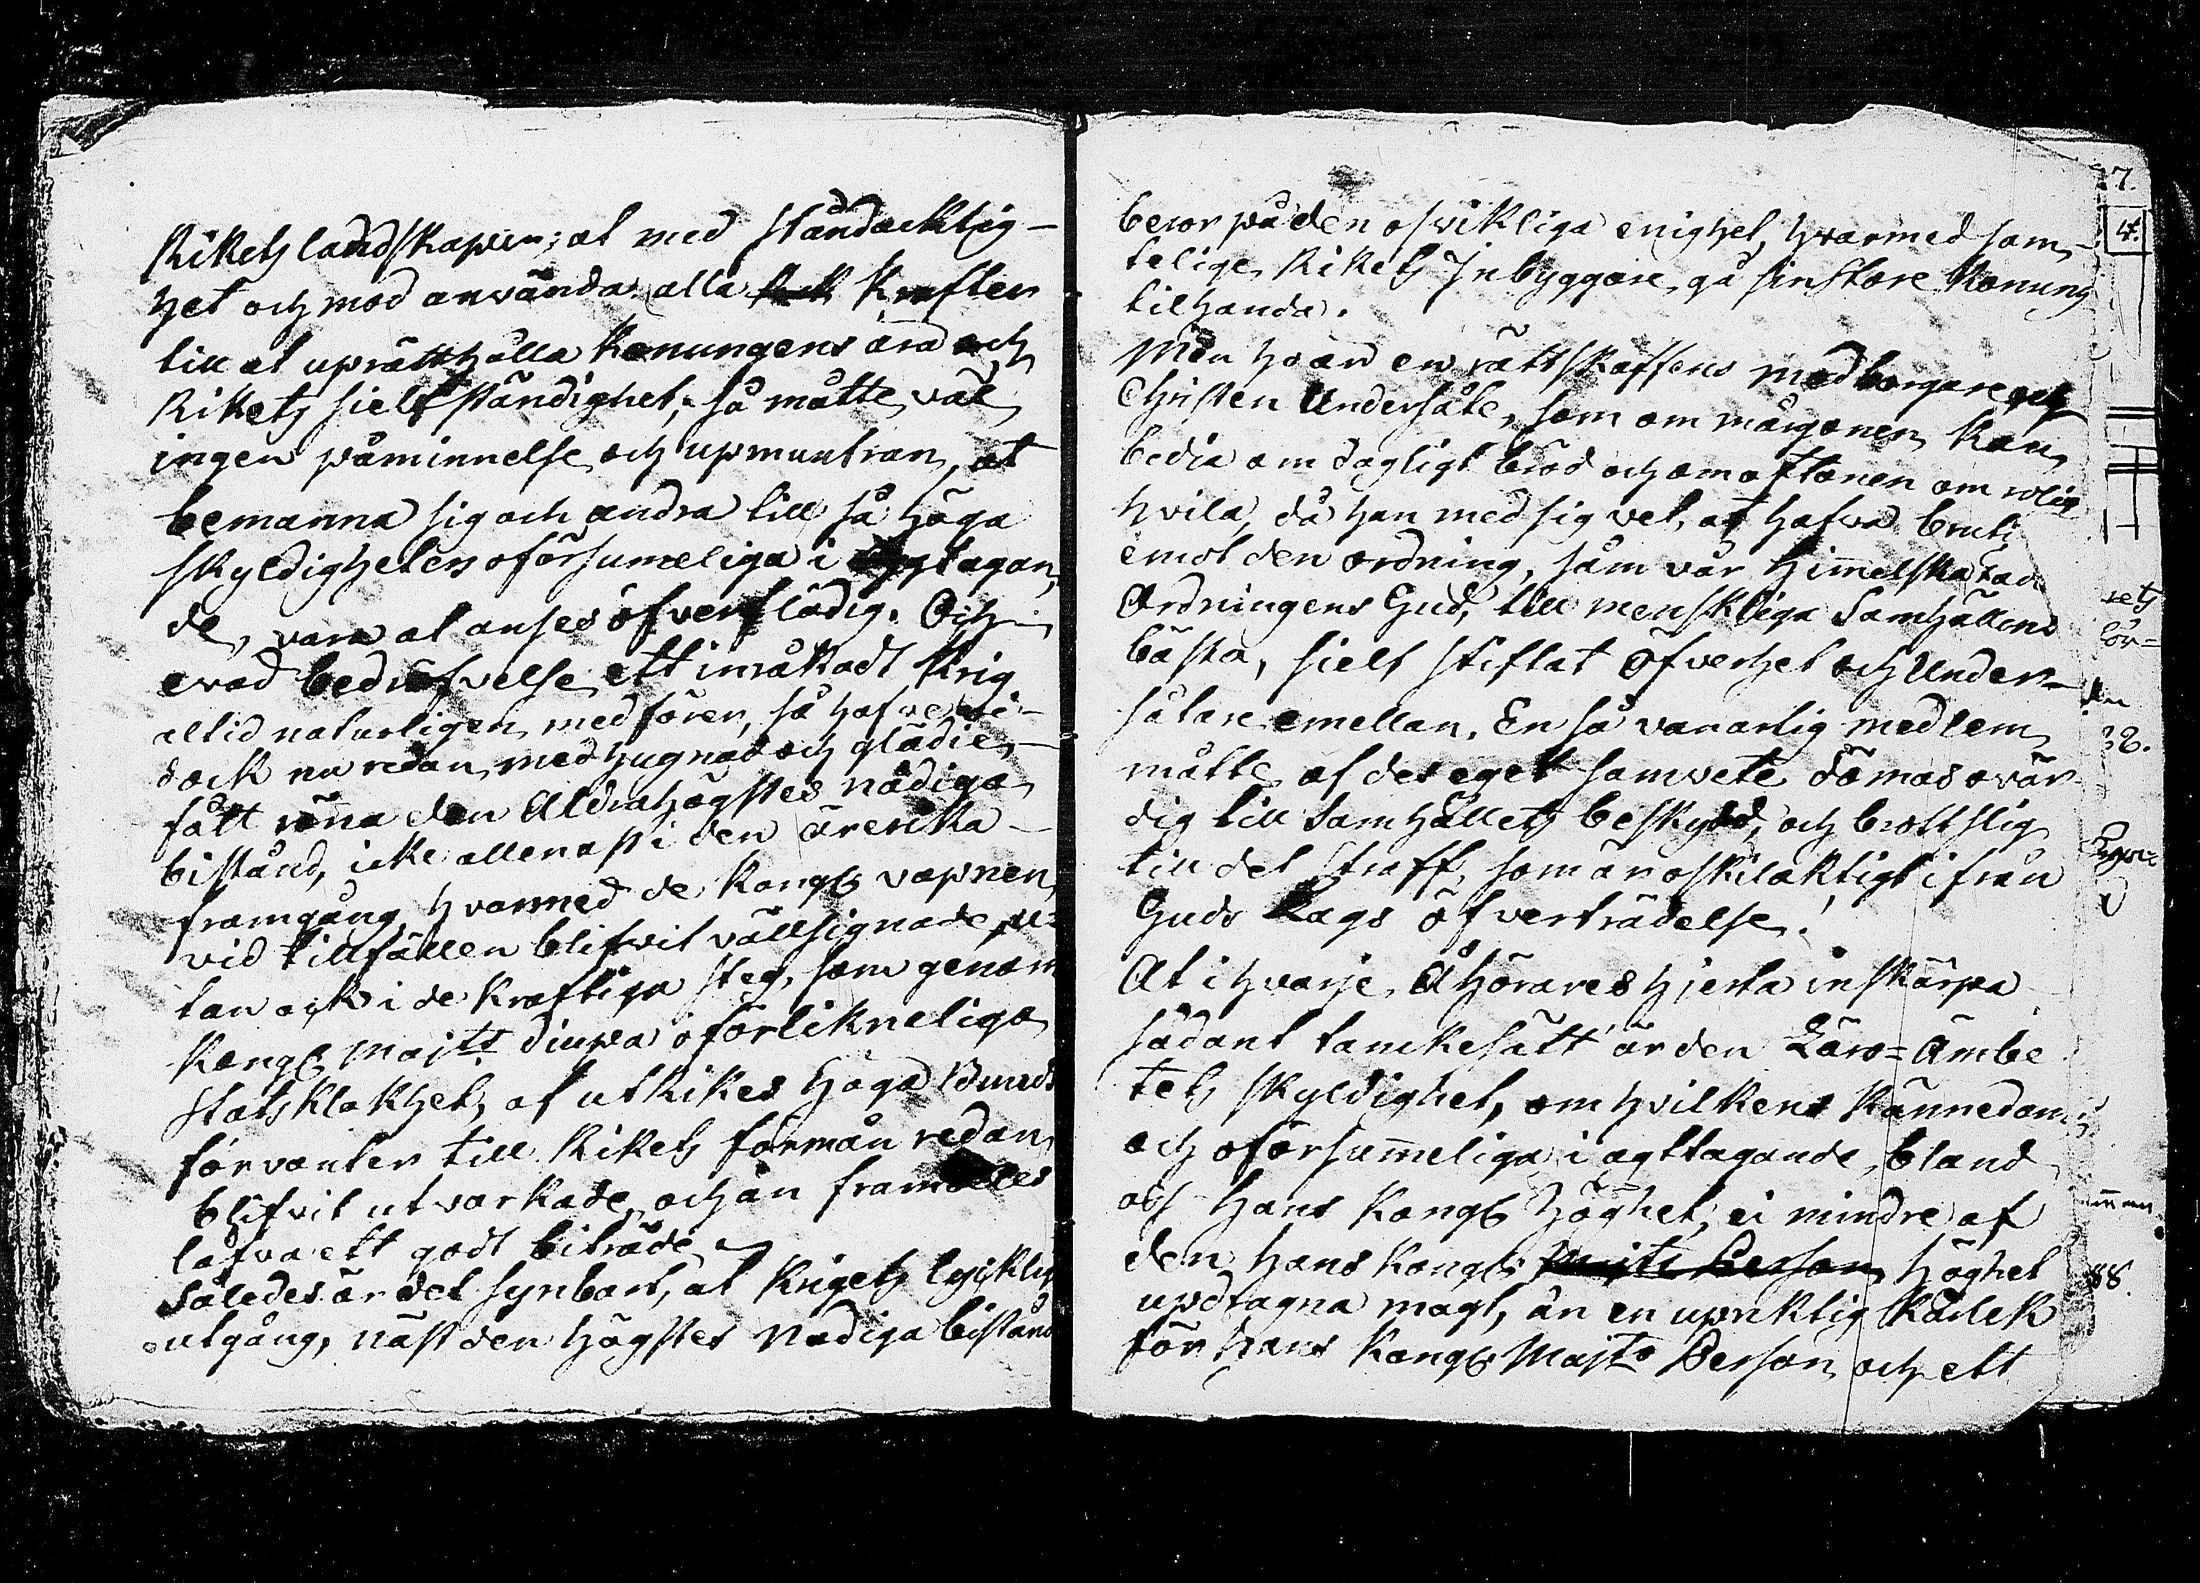 Riketz landskaper; at med ståndacktig-
het och mod använda alla Kraften
till at uprätthålla Konungens ära och
Riketz sielfständighet; så måtte väl
ingen påminnelse och upmuntran, at
bemanna sig och andra till så höga
skyldigheters oförsumeliga i agtagan-
de, vara at anses öfverflödig. Och
evad bedröfvelse ett inråkadt Krig
altid naturligen medförer, så hafve vi
dock nu redan med hugnad och glädie
fått röna den Aldrahögstes nådiga
bistånd, icke allenast i den ärerika
framgång, hvarmed de Kongl vapnen
vid tillfällen blifvit vällsignade, u-
tan ock i de kraftiga steg, som genom
Kongl Majtz diupa oförlikneliga
statsklokhet, af utRikes höga Bunds
förvanter till Riketz förmån redan
blifvit utvärkade, och än framdeles
låfva ett godt biträde
Således är det synbart, at Krigetz lycklig
utgång, näst den Högstes Nådiga bistånd
beror på den osvikliga enighet, hvarmed sam-
telige Riketz Inbyggare, gå sin store Konung
tilhanda.
Men ho är en rättskaffens medborgare och
Christen Undersåte, som om morgonen kan
bedia om dagligt bröd och om aftonen om rolig
hvila, då han med sig vet, at hafva brutit
emot den ordning, som vår Himmelska Fader
Ordningens Gud, till menskliga Samhällens
bästa, sielf stiftat Öfverhet och Under-
såtare emellan. En så vanartig medlem
måtte af des eget samvete dömas ovär
dig till Samhälletz beskydd, och brottslig
till det straff, som är oskilaktigt ifrån
Guds Lags öfverträdelse!
At i hvarje Åhörares hjerta inskärpa
sådant tanckesätt är den Läro=Ämbe
tetz skyldighet, om hvilkens kännedom
och oförsummeliga i agttagande bland
oss Hans Kongl Höghet, ei mindre af
den Hans Kongl Majts Person Höghet
updragna magt, än en upriktig Kärlek
för Hans Kongl Majts Person och ett
7.
4.
retz
för=
den
38.
88.